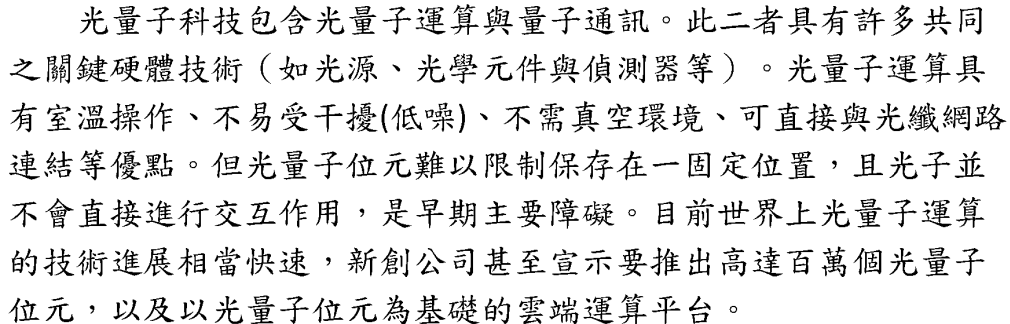 光量子科技包含光量子運算與量子通訊。此二者具有許多共同
之關鍵硬體技術（如光源、光學元件與偵測器等）。光量子運算具
有室溫操作、不易受干擾(低噪)、不需真空環境、可直接與光纖網路
連結等優點。但光量子位元難以限制保存在一固定位置，且光子並
不會直接進行交互作用，是早期主要障礙。目前世界上光量子運算
的技術進展相當快速，新創公司甚至宣示要推出高達百萬個光量子
位元，以及以光量子位元為基礎的雲端運算平台。